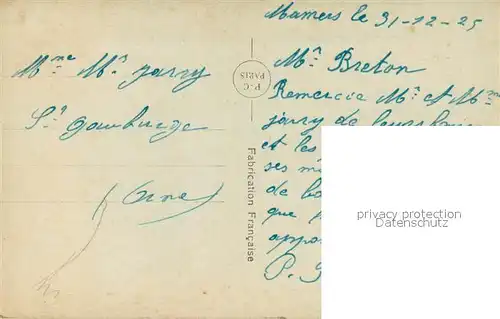 Mamers le 31-12-25
Mme Mr Jarry
St Gauburge
(Orne)
P-C
PARIS
Fabrication Française
Mr Breton
Remercie Mr et Mme
Jarry de leurs
et les
ses
de
que
P.
privacy protection
Datenschutz